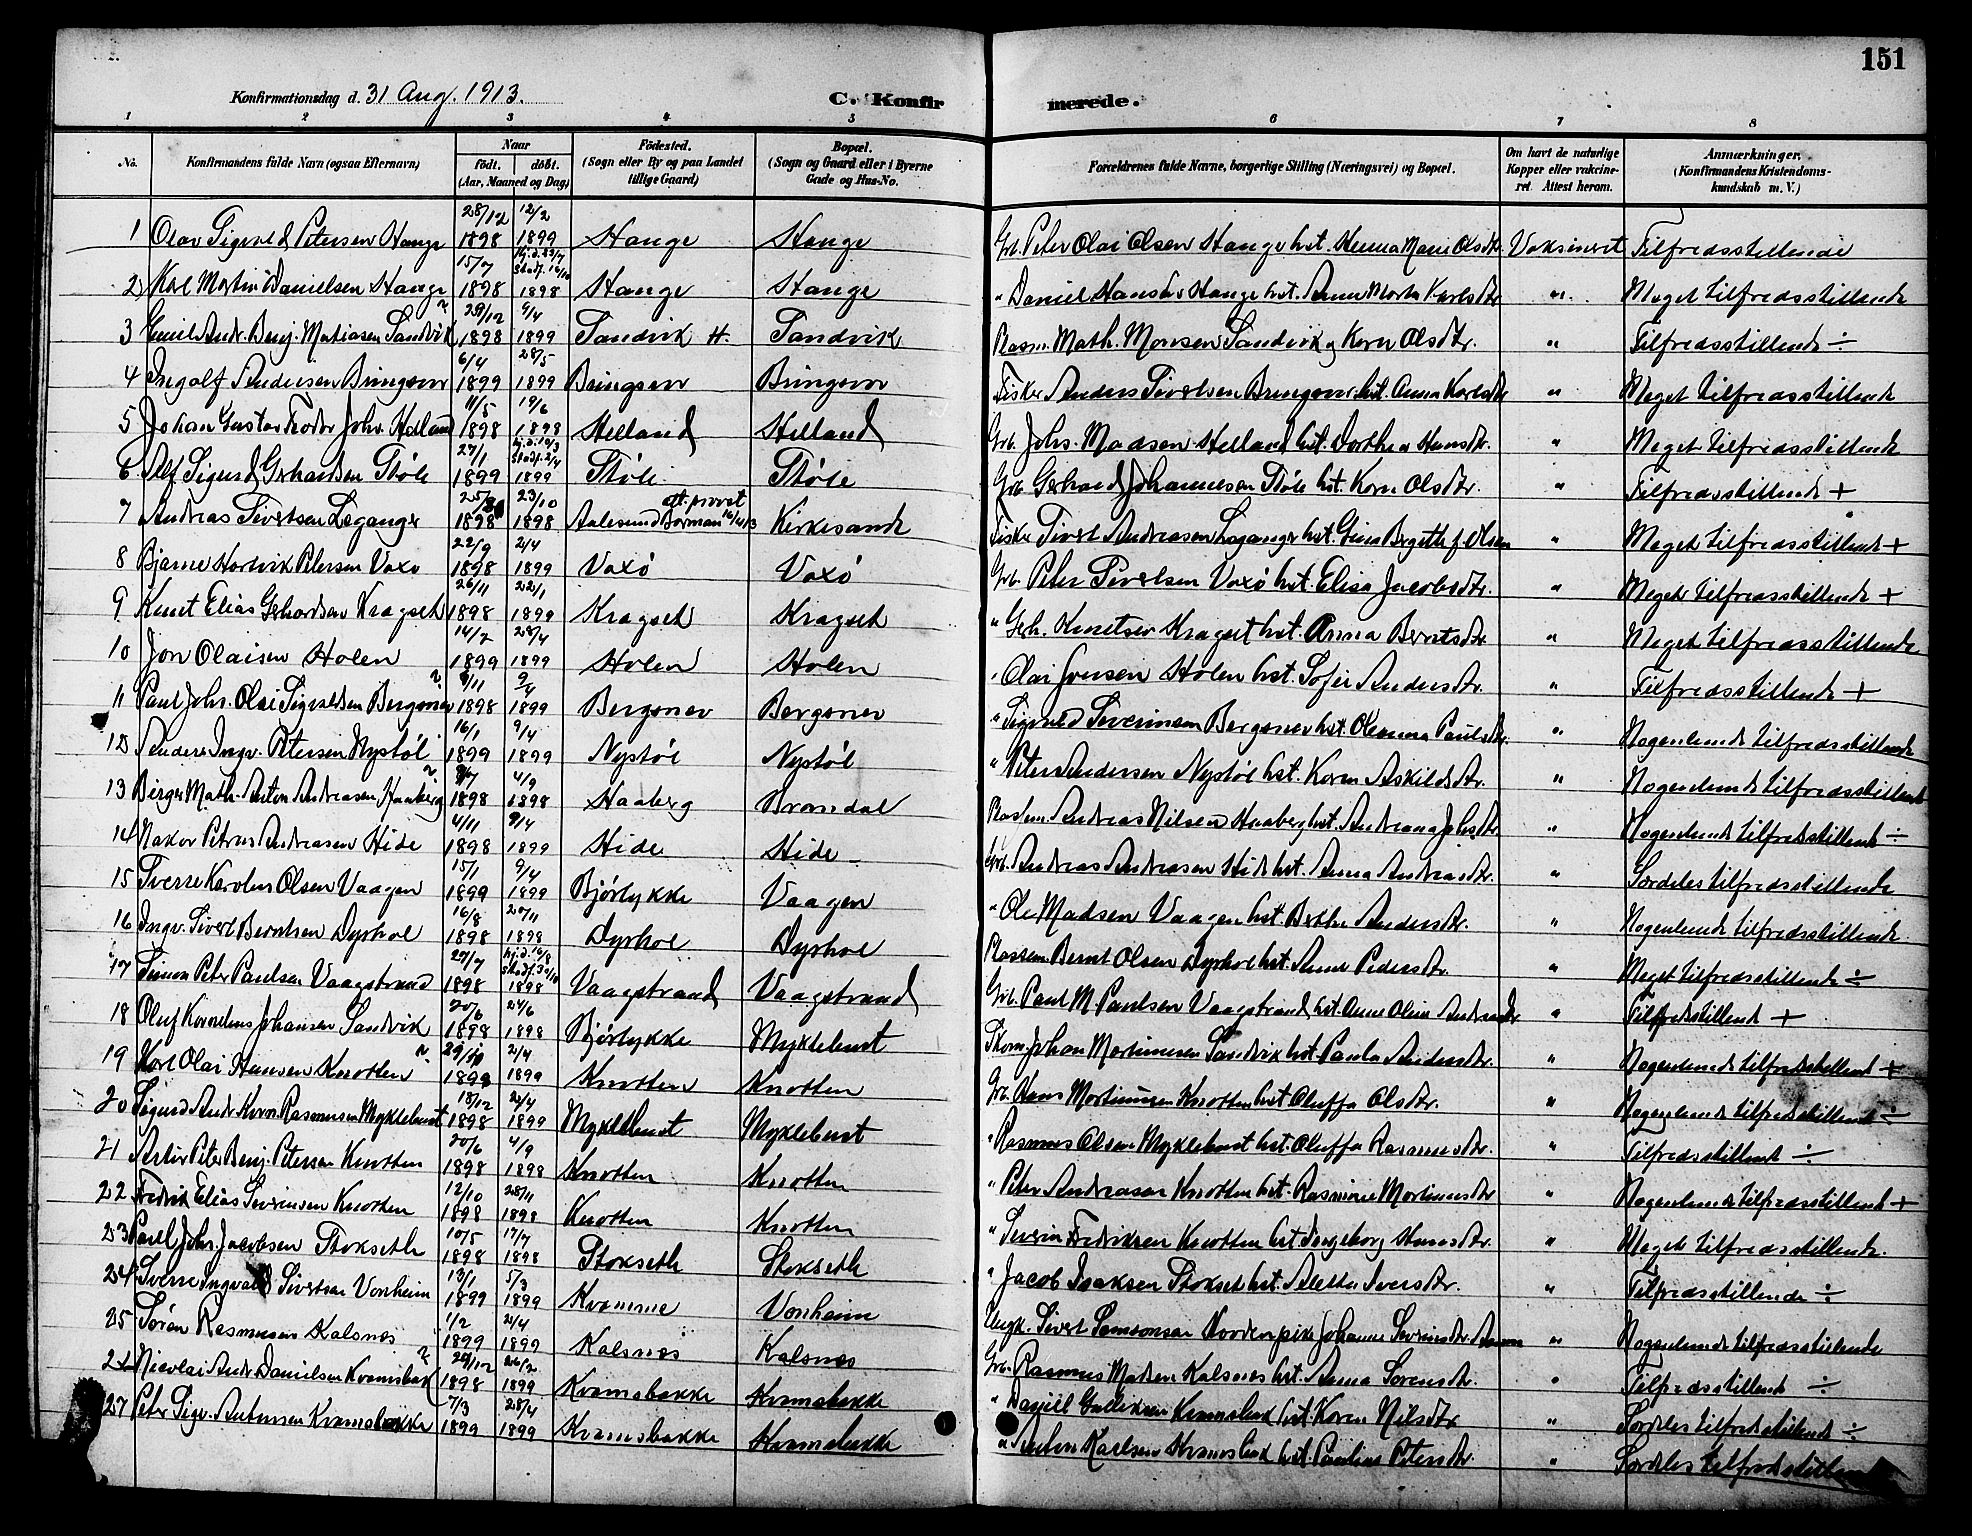 151
Konfirmationsdag d. 31 Aug. 1913. C. Konfirmerede.
1 2 3 4 5 6 7 8
No. Konfirmandens fulde Navn (ogsaa Efternavn) Naar født. døbt. (Aar, Maaned og Dag) Fødested. (Sogn eller By og paa Landet tillige Gaard) Bopæl. (Sogn og Gaard eller i Byerne Gade og Hus-No. Forældrenes fulde Navne, borgerlige Stilling (Næringsvei) og Bopæl. Om havt de naturlige Kopper eller vakcineret. Attest herom. Anmærkninger. (Konfirmandens Kristendomskundskab m. V.)
1 Olav Sigvald Petersen Hauge 28/12 1898 12/2 1899 Hauge Hauge Grb. Peter Olai Olsen Hauge hst. Marie Olsdtr. Vaksineret Tilfredsstillende
2 Karl Martin Danielsen Hauge 15/7 1898 hj.d. 23/7 Stadf. 16/10 1898 Hauge Hauge " Daniel Hauge hst. Anne Marta Karlsdtr " Meget tilfredsstillende
3 Emil Andr. Benj. Matiasen Sandvik 29/12 1898 9/4 1899 Sandvik H. Sandvik Rasm. Math. Monsen Sandvik og Karn Olsdtr. " Tilfredsstillende ÷
4 Ingolf Andersen Bringsvor 6/4 1899 28/5 1899 Bringsvor Bringsvor Fisker Anders Sivertsen Bringsvor hst. Anna Karlsdtr " Meget tilfredsstillende
5 Johan Gustav Teodor Johs. Helland 11/5 1898 19/6 1898 Helland Helland Grb. Johs. Madsen Helland hst. Dorthea Hansdtr. " Meget tilfredsstillende
6 Alf Sigurd Gerhardsen Støle 27/1 1899 hj.d. 10/3 Stadf. 2/4 1899 Støle Støle Grb. Gerhard Johannesen Støle hst. Karn Olsdtr. " Tilfredsstillende +
7 Andreas Sivertsen Leganger 1898 23/10 1898 Aalesund att. provst Borman 16/4 13 Kirkesande Fisker Sivert Andreasen Leganger hst. Gina Bergitte f. Olsen " Meget tilfredsstillende +
8 Bjarne Hartvik Petersen Vaxø 22/9 1898 2/4 1899 Vaxø Vaxø Grb. Peter Sivertsen Vaxø hst. Elisa Jacobsdtr. " Meget tilfredsstillende +
9 Knut Elias Gerhardsen Kragset 26/11 1898 22/1 1899 Kragset Kragset " Gerh. Knutsen Kragset hst. Anna Berntsdtr " Meget tilfredsstillende
10 Jon Olaisen Holen 14/2 1899 28/4 1899 Holen Holen " Olai Jonsen Holen hst. Sofie Andersdtr. " Tilfredsstillende +
11 Paul Johs. Olai Sigvaldsen Bergsnev 9/11 1898 9/4 1899 Bergsnev Bergsnev " Sigvald Severinsen Bergsnev hst. Oleanna Paulsdtr. " Nogenlunde tilfredsstillende
12 Anders Ingv. Petersen Nystøl 16/1 1899 9/4 1899 Nystøl Nystøl " Peter Andersen Nystøl hst. Karen Askildsdtr. " Nogenlunde tilfredsstillende
13 Birger Math. Anton Andreasen Haaberg 1898 4/9 1898 Haaberg Brandal Andreas Nilsen Haaberg hst. Andreana Johsdtr " Nogenlunde tilfredsstillende ÷
14 Petrus Andreasen Hide 4/11 1898 9/4 1899 Hide Hide Grb. Andreas Andreasen Hide hst. Anna Andreasdtr. " Særdeles tilfredsstillende
15 Sverre Karolus Olsen Vaagen 15/1 1899 9/4 1899 Bjørlykke Vaagen " Ole Madsen Vaagen hst. Berthe Andersdtr. " Nogenlunde tilfredsstillende
16 Ingv. Sivert Berntsen Dyrhol 16/8 1898 20/11 1898 Dyrhol Dyrhol Bernt Olsen Dyrhol hst. Anne Pedersdtr. " Meget tilfredsstillende ÷
17 Simon Peter Paulsen Vaagstrand 27/7 1898 hj.d. 10/8 Stadf. 30/10 1898 Vaagstrand Vaagstrand Grb. Paul M. Paulsen Vaagstrand hst. Anne Olina Andreasdtr " Tilfredsstillend +
18 Oluf Kornelius Johansen Sandvik 20/6 1898 24/6 1898 Bjørlykke Myklebust Johan Martinusen Sandvik hst. Paula Andersdtr. " Nogenlunde tilfredsstillend +
19 Karl Olai Hansen Knotten 1898 2/4 1899 Knotten Knotten Grb. Hans Martinusen Knotten hst Oluffa Olsdtr. " Nogenlunde tilfredsstillend ÷
20 Sigurd Andr. Korn. Rasmusen Myklebust 18/12 1898 24/4 1899 Myklebust Myklebust " Rasmus Olsen Myklebust hst. Oluffa Rasmusdtr. " Tilfredsstillend ÷
21 Artur Peter Benj. Petersen Knotten 20/6 1898 4/9 1898 Knotten Knotten " Peter Andreasen Knotten hst. Rasmine Martinusdtr " Nogenlunde tilfredsstillend +
22 Fredrik Elias Severinsen Knotten 12/10 1898 28/11 1898 Knotten Knotten " Severin Fredriksen Knotten hst. Ingeborg Hansdtr. " Meget tilfredsstillende.
23 Paul Johs. Jacobsen Stokseth 10/5 1898 17/7 1898 Stokseth Stokseth " Jacob Isaksen Stokset hst. Aletta Iversdtr. " Tilfredsstillende ÷
24 Sverre Ingvald Sivertsen Vonheim 13/1 1899 5/3 1899 Kvamme Vonheim Ungk. Sivert Samsonsen pike Johanne Severinsdtr. " Nogenlunde tilfredsstillende
25 Søren Rasmusen Kalsnes 1/2 1899 24/4 1899 Kalsnes Kalsnes Grb. Rasmus Madsen Kalsnes hst. Anna Sørensdtr. " Tilfredsstillend ÷
26 Nicolai Andr. Danielsen Kvamsbak 1898 26/2 1899 Kvamsbakke Kvamsbakke " Daniel Gulliksen Kvamsbak hst. Karen Nilsdtr " Særdeles tilfredsstillende ÷
27 Peter Sigv. Antonsen Kvamsbakke 7/3 1899 28/4 1899 Kvamsbakke Kvamsbakke " Anton Karlsen Kvamsbak hst. Pauline Petersdtr. " Særdeles tilfredsstillende